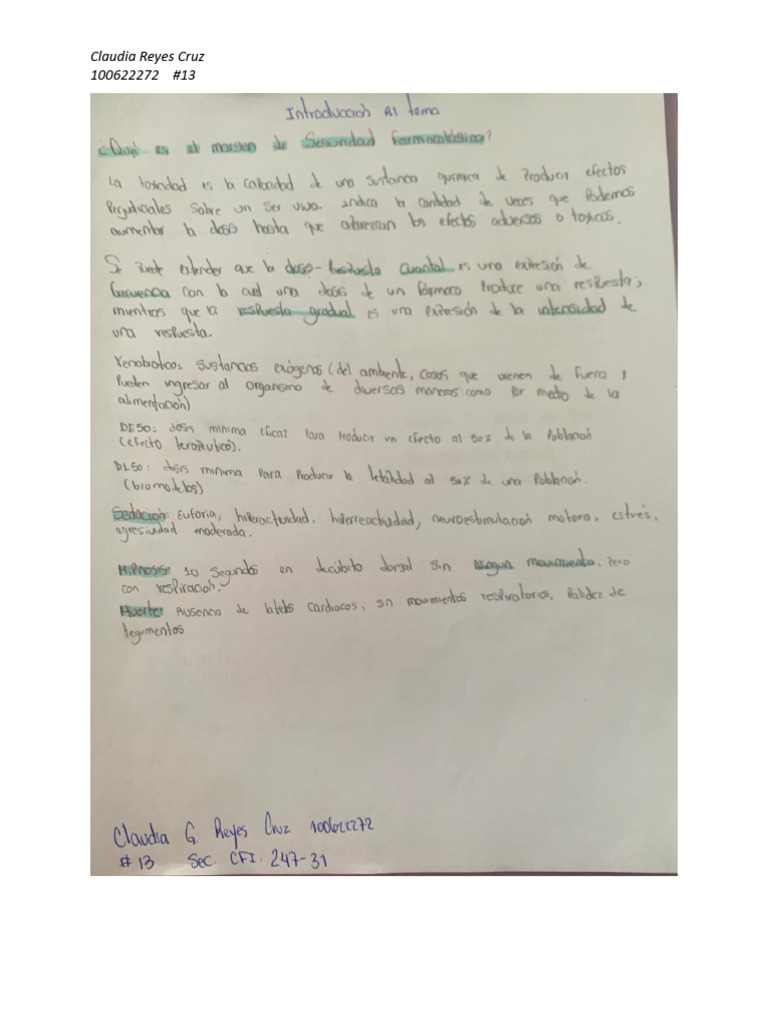 Claudia Reyes Cruz
100622272 #13
Introducción Al tema
¿Qué es el margen de Seguridad farmacológica?
La toxicidad es la capacidad de una sustancia quimica de Producir efectos
Perjudiciales Sobre un Ser vivo. Indica la cantidad de veces que Podemos
aumentar la dosis hasta que aparezcan los efectos adversos o toxicos.
Se Puede entender que la dosis-Respuesta Cuantal es una expresión de
frecuencia con la cual una dosis de un fármaco Produce una respuesta;
mientras que la respuesta gradual es una expresión de la intensidad de
una respuesta.
Xenobiotico: Sustancias exógenas (del ambiente, cosas que vienen de fuera y
Pueden ingresar al organismo de diversas maneras como Por medio de la
alimentación)
DE50: dosis minima eficaz Para Producir un efecto al 50% de la Población
(efecto terapéutico).
DL50: dosis minima Para Producir la letalidad al 50% de una Población.
(biomodelos)
Sedación: Euforia, hiperactividad, hiperreactividad, neuroestimulación motora, estrés,
agresividad moderada.
Hipnosis: 10 Segundos en decúbito dorsal sin ningun movimiento, Pero
con respiración.
Muerte: Ausencia de latidos cardiacos, sin movimientos respiratorios, Palidez de
tegumentos
Claudia G. Reyes Cruz 100622272
#13 Sec. CFI-247-31